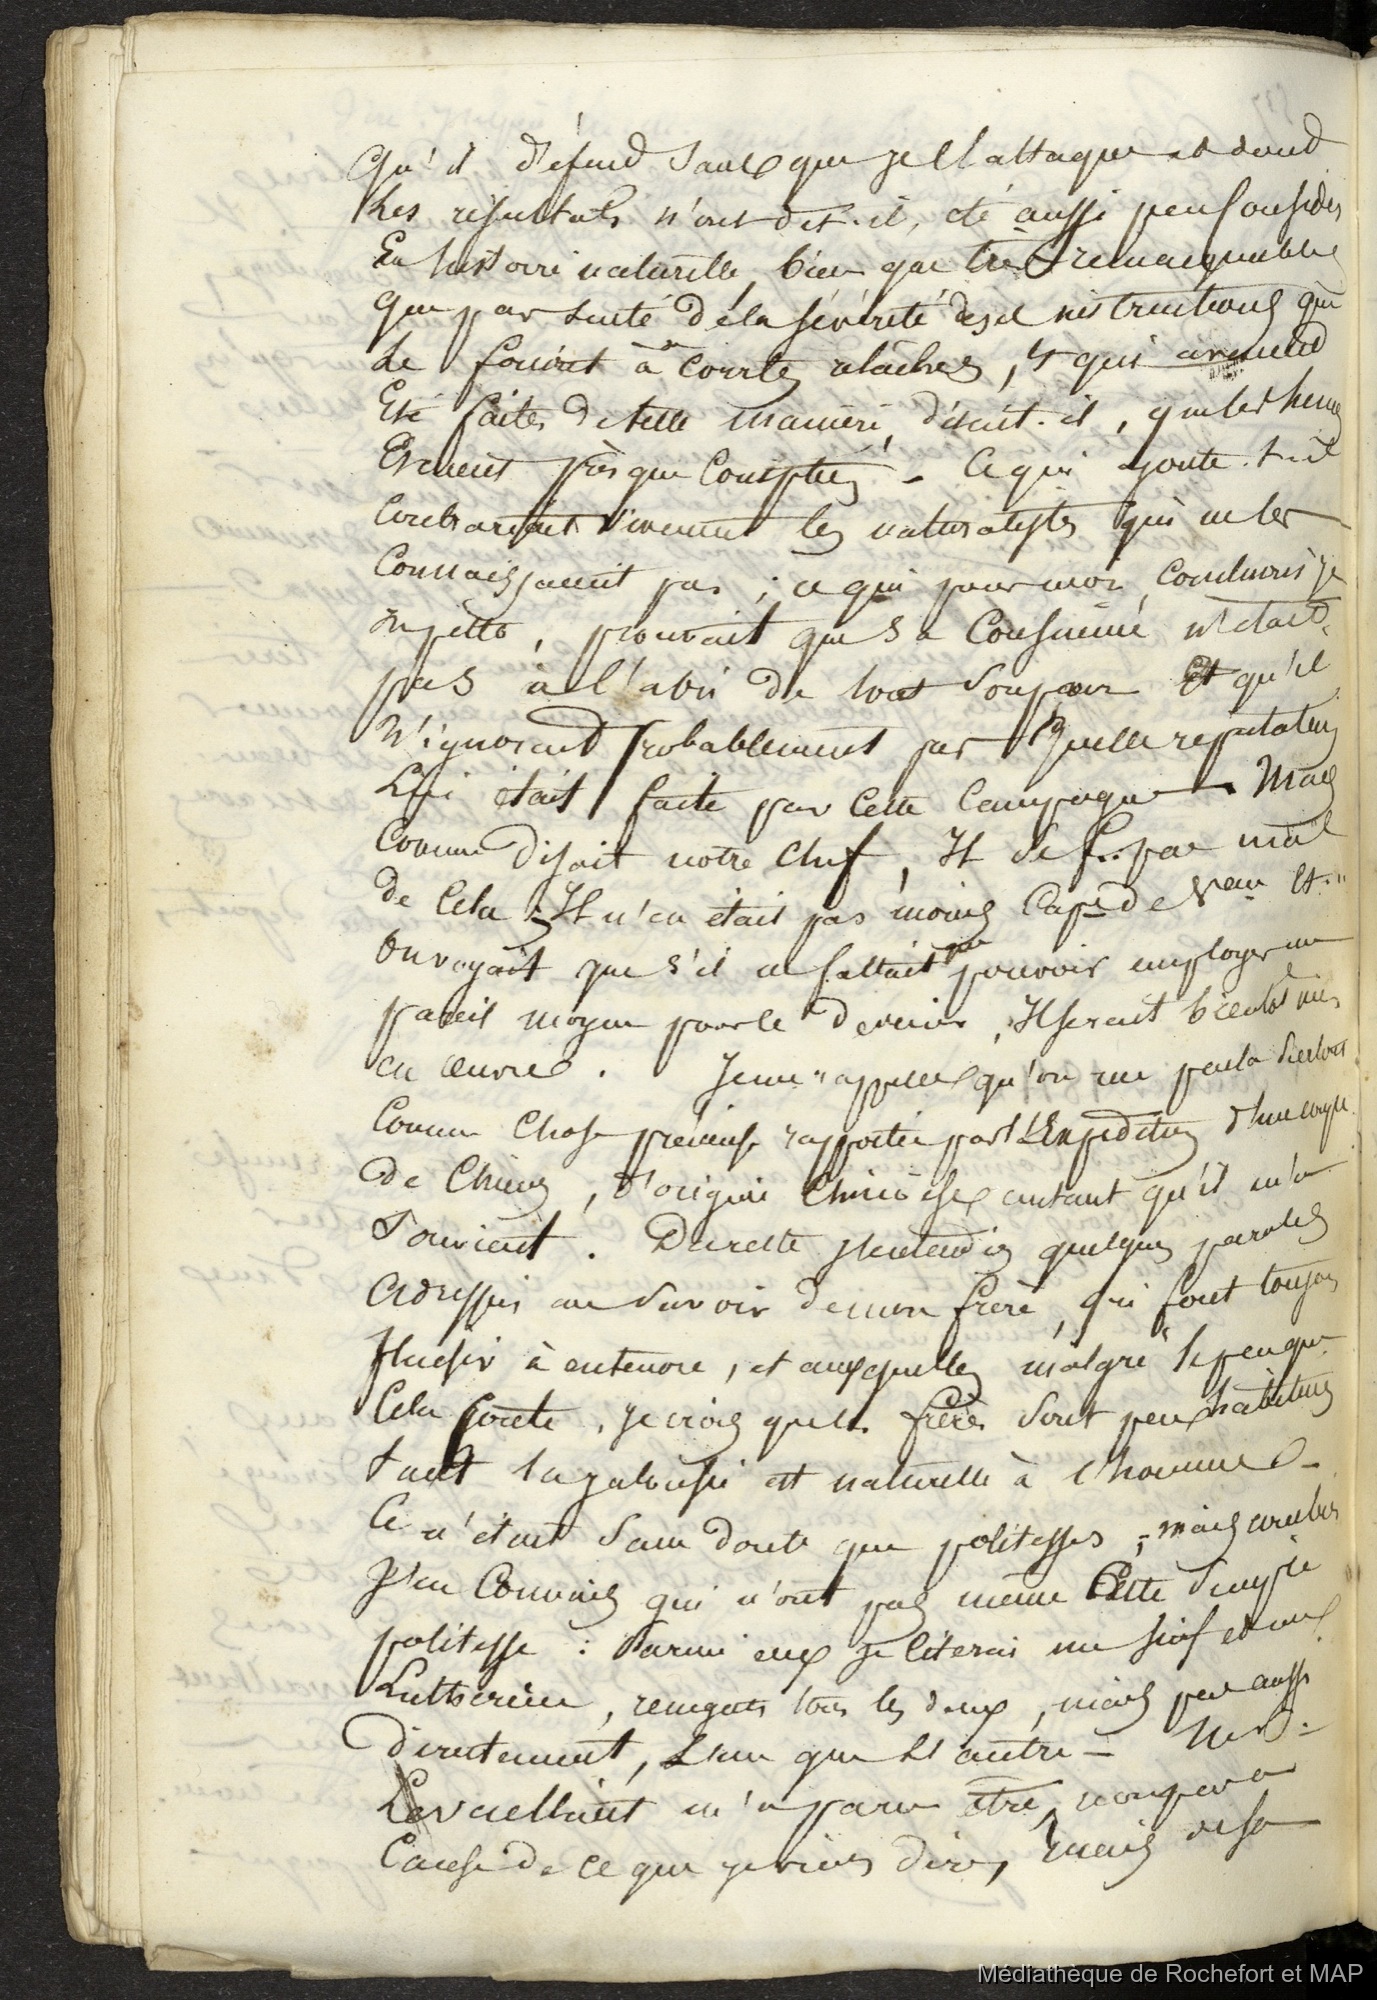 Qu'il défend sans que je l'attaque et dont
Les résultats n'ont dit-il, été aussi peu considér
En histoire naturelle, bien que très remarquables
que par suite de la sévérité des instructions qui
le forcent à de courtes relâches, & qui avaient
Eté faites de telle manière, disait-il, que les heures
Etaient presque Comptées - Ce qui ajoute-t-il
Contrariait vivement les naturalistes qui ne les
Connaissaient pas ; ce qui pour moi, Conclurais je
In petto, prouvait que sa Conscience n'était
pas à l'abri de tout soupçon Et qu'il
N'ignorait probablement pas quelle réputation
Lui était faite par Cette Campagne - Mais
Comme disait notre Chef, Il se f.. pas mal
de Cela ; Il n'en était pas moins Capne de Veau Et..
On voyait que s'il ne fallait que pouvoir employer un
pareil moyen pour le devenir, Il serait bientôt mis
en œuvre. Je me rappelle qu'on me parla surtout
Comme Chose précieuse rapportée par L'Expédition d'un couple
de Chiens, d'origine Chinoise autant qu'il m'en
Souvient. Du reste j'entendis quelques paroles
adressées au savoir de mon frère, qui font toujours
Plaisir à entendre, et auxquelles malgré le peu que
Cela Coûte, je crois que les frères sont peu habitués
tant la jalousie est naturelle à l'homme -
Ce n'était sans doute que politesses ; mais combien
J'en Connais qui n'ont pas même Cette simple
politesse : Parmi eux je Citerai un juif et un
Luthérien, renégats tous les deux, mais pas aussi
directement, L'un que L'autre - Mr
Levaillant m'a paru être, non par
Cause de ce que je viens dire, mais de sa